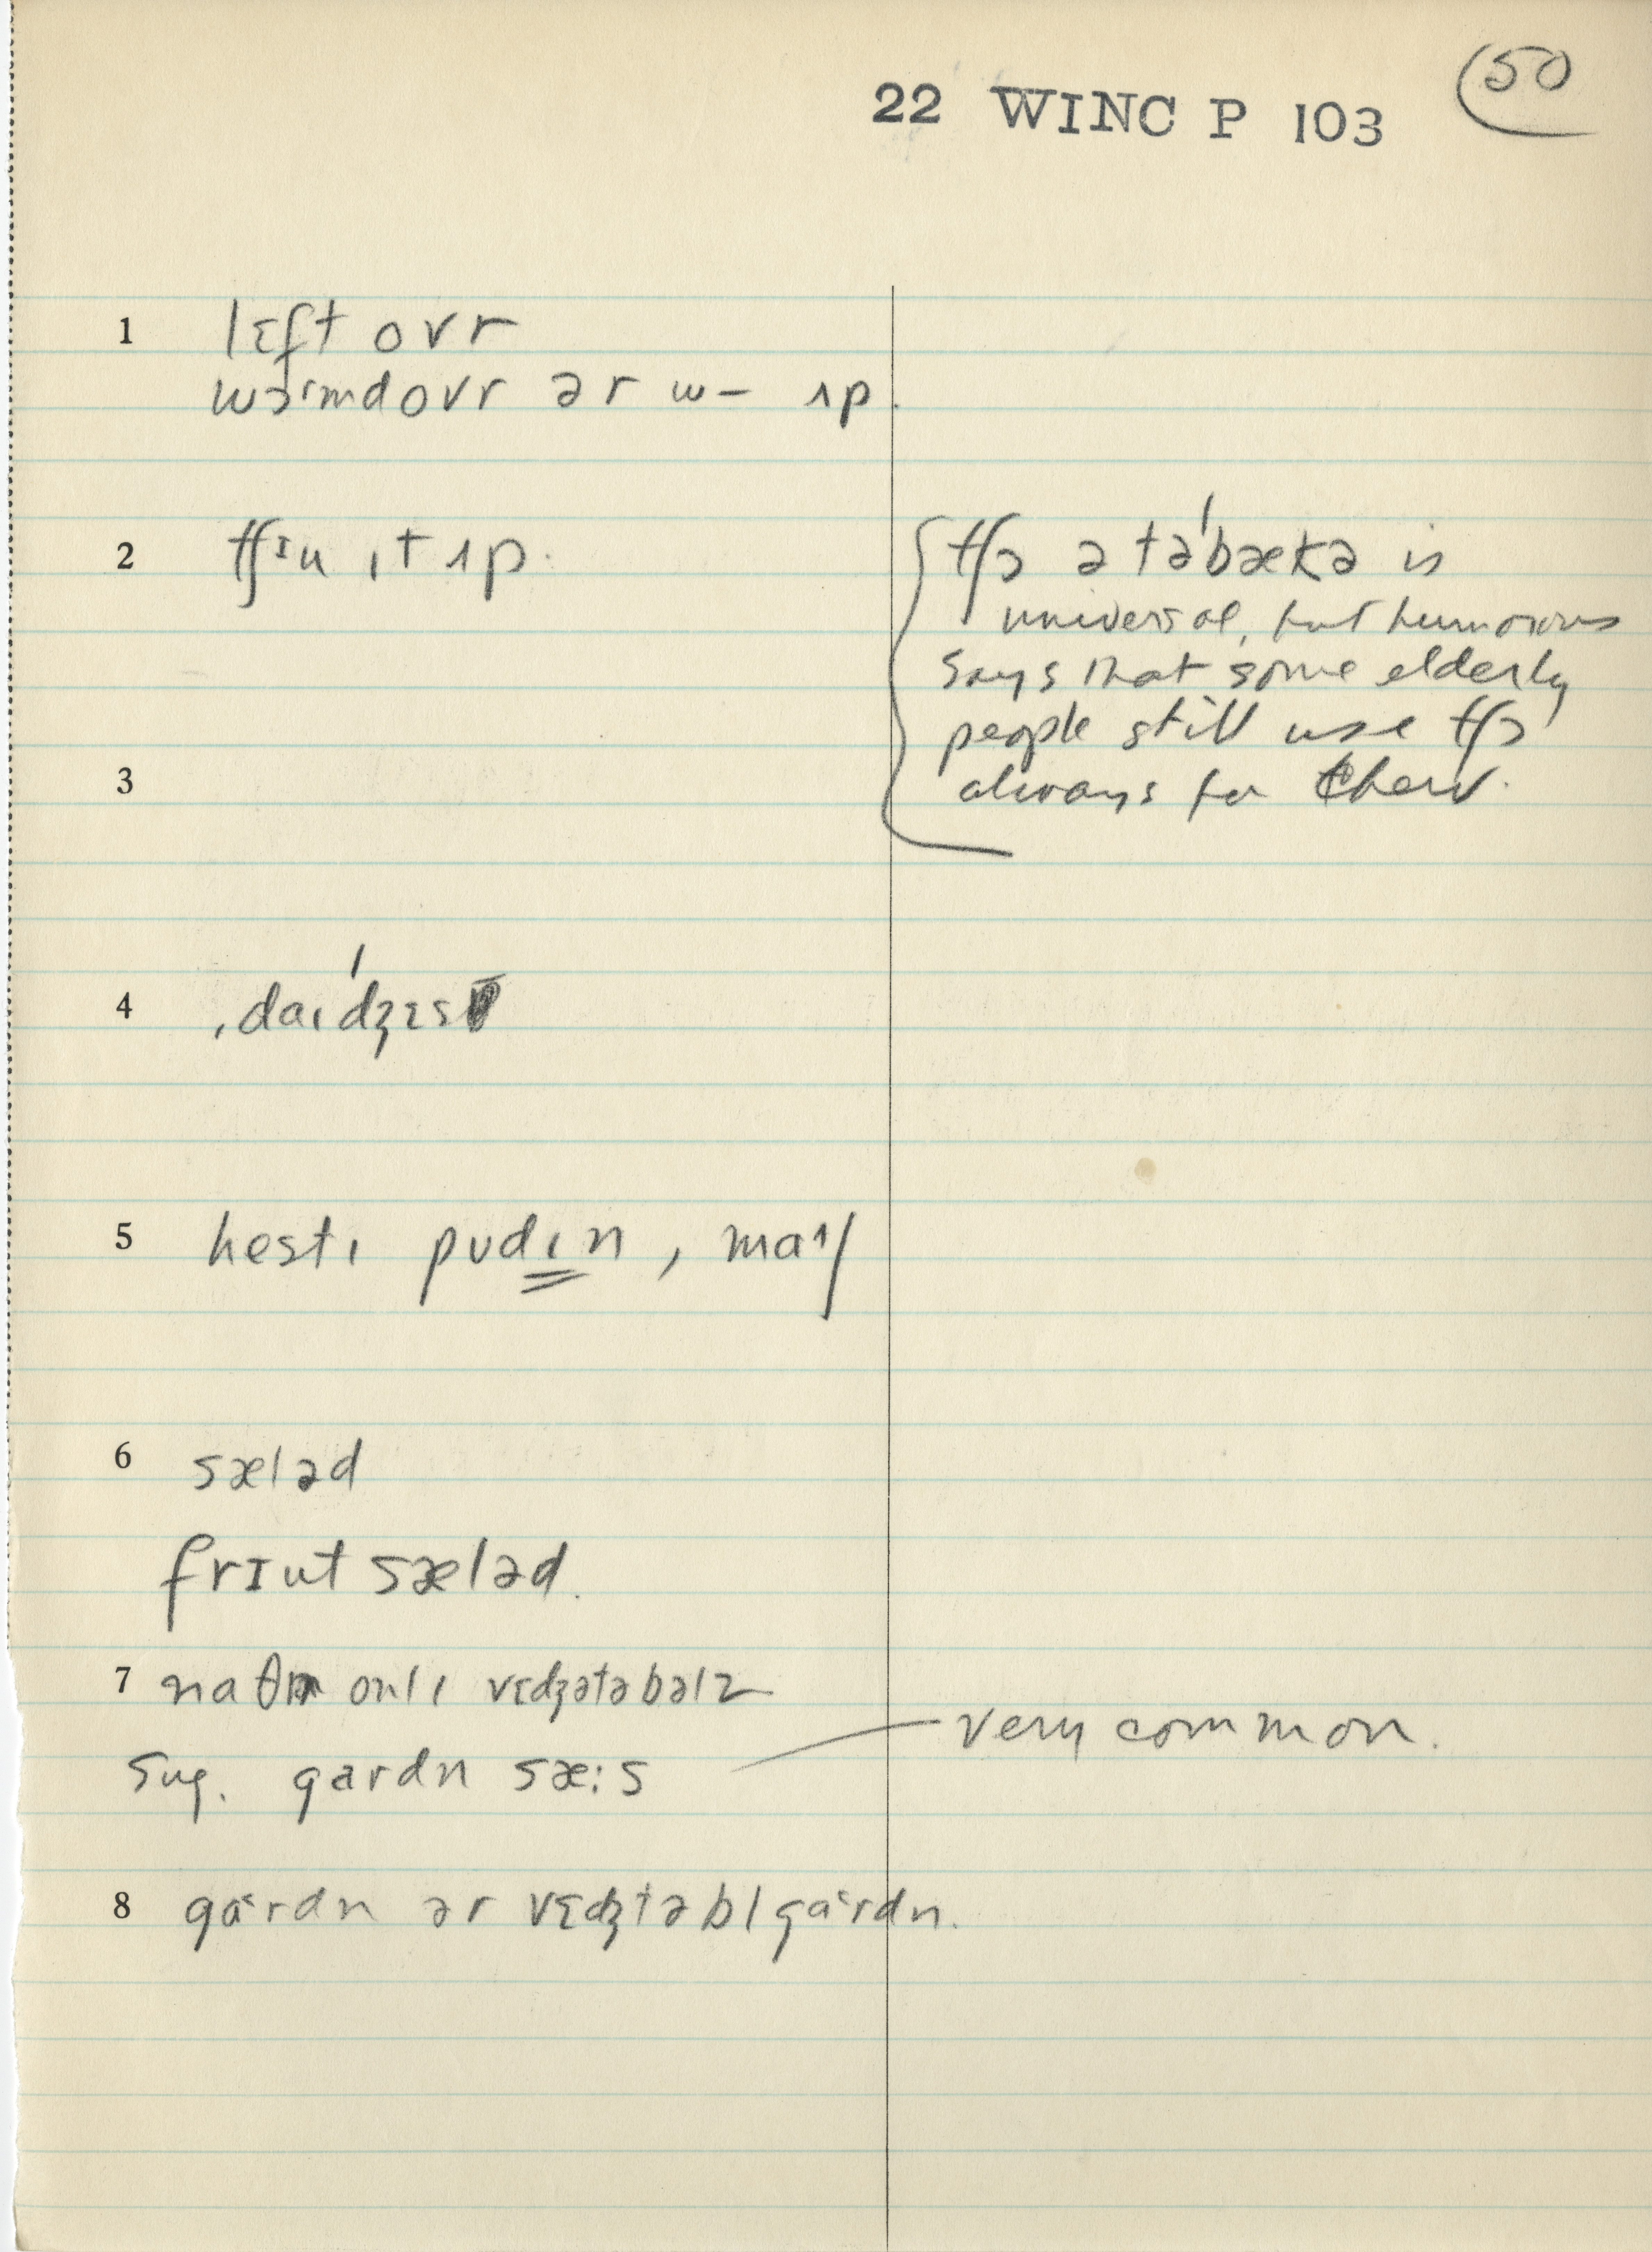 50
22 WINC P 103
1 lɛft ovr
wɔrmdovr ər w– ʌp.
2 tʃɪu ɪt ʌp.
tʃɔ ə təˈbækə is
universal, but humorous
says that some elderly
people still use tʃɔ
always for chew.
3
4 ˌdaɪˈdʒɛs
5 hestɪ pudɪn, maʃ
6 sæləd
frɪut sæləd.
7 onlɪ vɛdʒətəbəlz
very common.
sug. gardn sæ:s
8 gardn ər vɛdʒtəbl gardn.